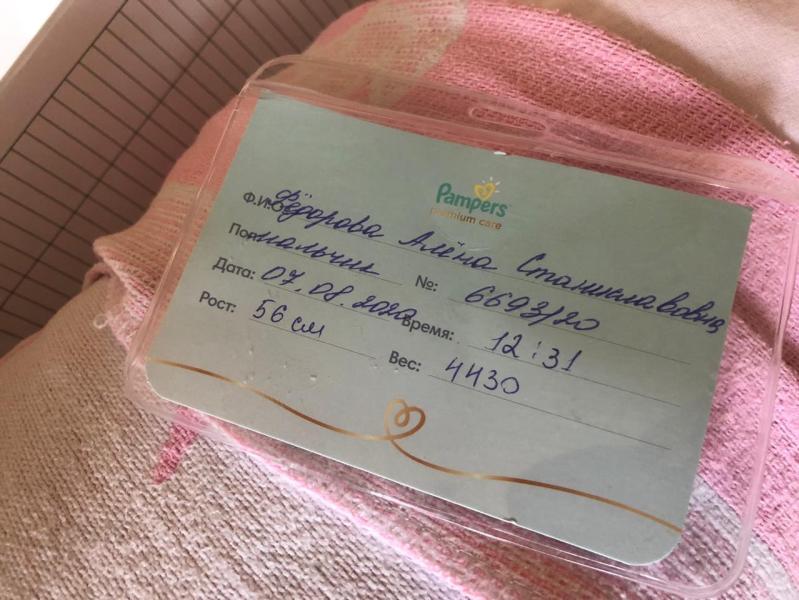 Pampers
premium care
Ф.И.О. Фёдорова Алёна Станиславовна
Пол: мальчик №: 6693/20
Дата: 07.08.2020 Время: 12:31
Рост: 56 см Вес: 4430